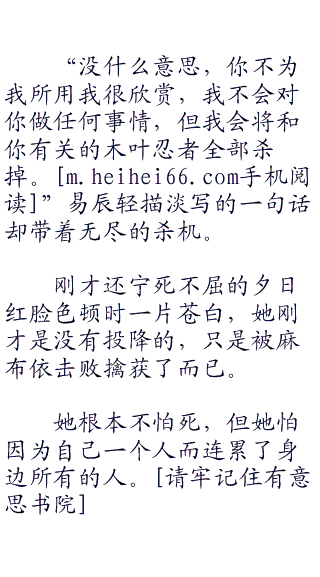 “没什么意思，你不为
我所用我很欣赏，我不会对
你做任何事情，但我会将和
你有关的木叶忍者全部杀
掉。[m.heihei66.com手机阅
读]”易辰轻描淡写的一句话
却带着无尽的杀机。
刚才还宁死不屈的夕日
红脸色顿时一片苍白，她刚
才是没有投降的，只是被麻
布依击败擒获了而已。
她根本不怕死，但她怕
因为自己一个人而连累了身
边所有的人。[请牢记住有意
思书院]